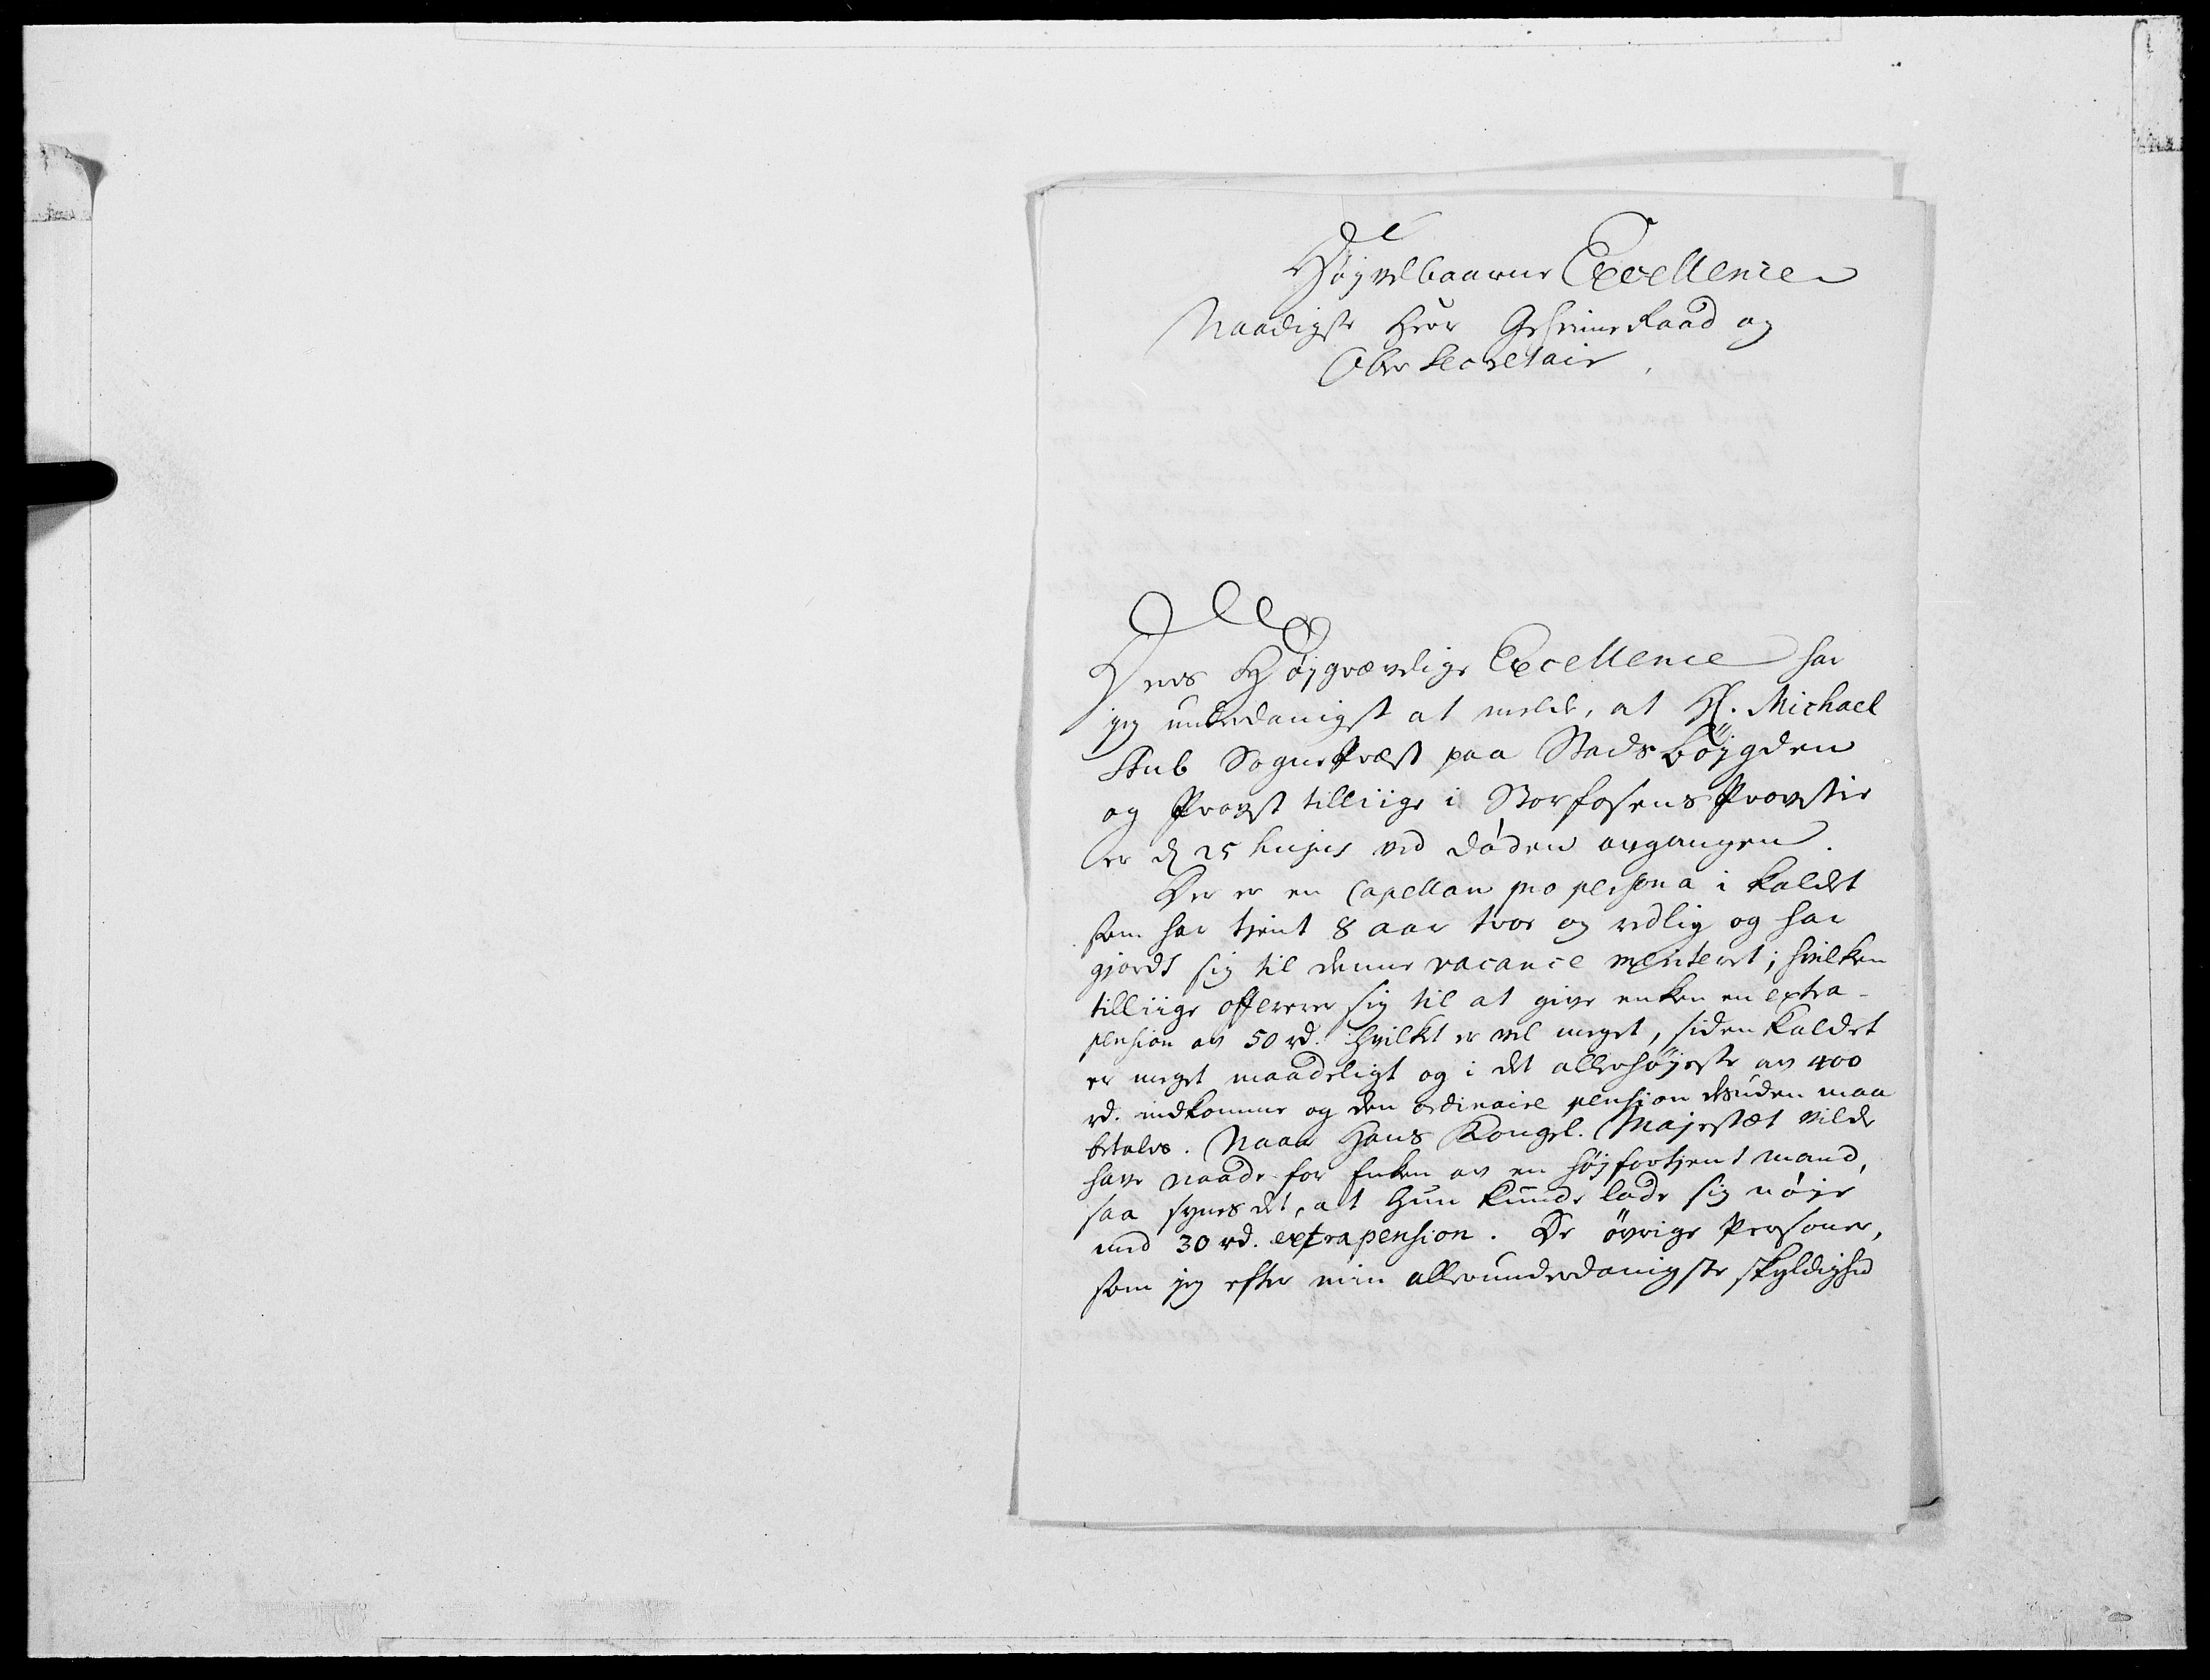 Høyvelbaarne Excellence
Naadigste Herr Geheime Raad og
Ober Secretair,
Deris Høygrævelige Excellence har
jeg underdanigst at melde, at H. Michael
Stub SognePræst paa Stadsböygden
og Provst tilliige i Storfosens Provstie
er d 25 hujus ved døden avgangen.
Der er en Capellan pro persona i kaldet
som har tjent 8 aar troe og redlig og har
gjordt sig til denne vacance meriteret; hvilken
tilliige offererer sig til at give enken en extra-
pension av 50 rd. hvilket er vel meget, siden kaldet
er meget maadeligt og i det allerhøjeste av 400
rd. indkomme og den ordinaire pension desuden maa
betales. Naar Hans Kongel. Majestæt vilde
have naade for Enken av en højfortjent mand,
saa synes det, at hun kunde lade sig nøje
med 30 rd. extrapension. De øvrige Personer,
som jeg efter min allerunderdanigste skyldighed